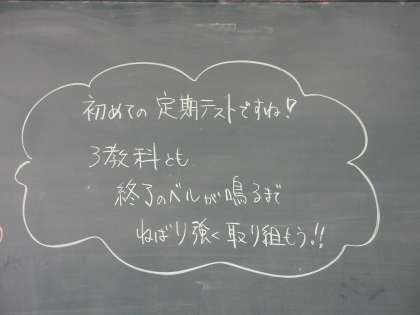 初めての定期テストですね!
3教科とも
終了のベルが鳴るまで
ねばり強く取り組もう!!